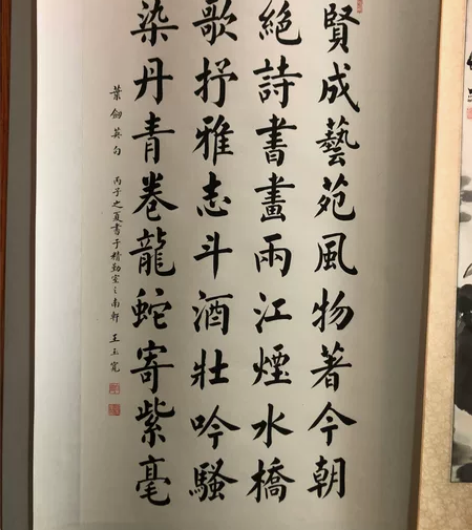 賢成藝苑風物著今朝
絕詩書畫兩江煙水橋
歌抒雅志斗酒壯吟騷
染丹青卷龍蛇寄紫毫
葉劍英句 丙子之夏書于精勤室之南軒 王玉寬